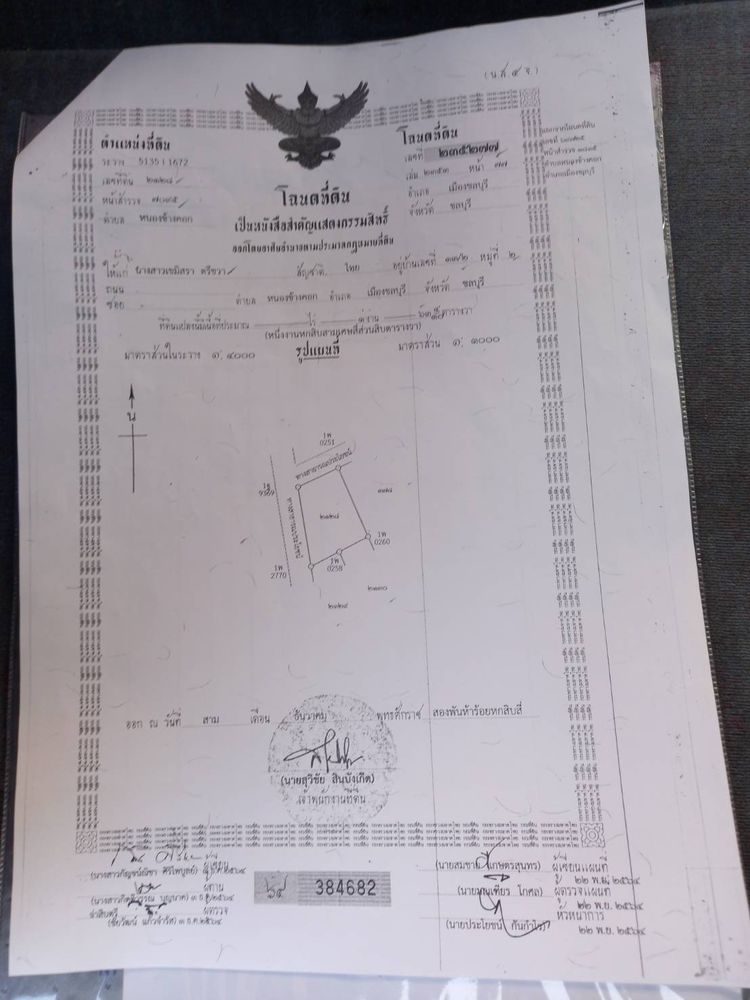 (น.ส. ๔ จ.)
ตำแหน่งที่ดิน
ระวาง 5135 I 1672
เลขที่ดิน ๒๑๒๘
หน้าสำรวจ
ตำบล หนองข้างคอก
โฉนดที่ดิน
เลขที่ ๒๓๕๒๗๗
เล่ม ๒๓๕๓ หน้า ๗๗
อำเภอ เมืองชลบุรี
จังหวัด ชลบุรี
โฉนดที่ดิน
เป็นหนังสือสำคัญแสดงกรรมสิทธิ์
ออกโดยอาศัยอำนาจตามประมวลกฎหมายที่ดิน
ให้แก่ นางสาวเขมิสรา ตรีขวา สัญชาติ ไทย อยู่บ้านเลขที่ ๑๗๒ หมู่ที่ ๒
ถนน
ซอย ตำบล หนองข้างคอก อำเภอ เมืองชลบุรี จังหวัด ชลบุรี
ที่ดินแปลงนี้มีเนื้อที่ประมาณ ไร่ ๑ งาน ตารางวา
(หนึ่งงานหกสิบสามเศษสี่ส่วนสิบตารางวา)
มาตราส่วนในระวาง ๑: ๔๐๐๐ รูปแผนที่ มาตราส่วน ๑: ๑๐๐๐
น
1พ
0251
ทางสาธารณประโยชน์
ทางสาธารณประโยชน์
๒๑๒๘
1พ
0260
1พ
0258
1พ
2770
๒๑๓๐
๒๑๒๙
ออก ณ วันที่ สาม เดือน ธันวาคม พุทธศักราช สองพันห้าร้อยหกสิบสี่
(นายสุวิชัย สินบังเกิด)
เจ้าพนักงานที่ดิน
ผู้เขียน
ผู้ทาน
ผู้ตรวจ
๖๔ 384682
(นายสมชาย เกษตรสุนทร) ผู้เขียนแผนที่
๒๒ พ.ย. ๒๕๖๔
ผู้ตรวจแผนที่
๒๒ พ.ย. ๒๕๖๔
หัวหน้าการ
(นายประโยชน์ กันกำไร) ๒๒ พ.ย. ๒๕๖๔